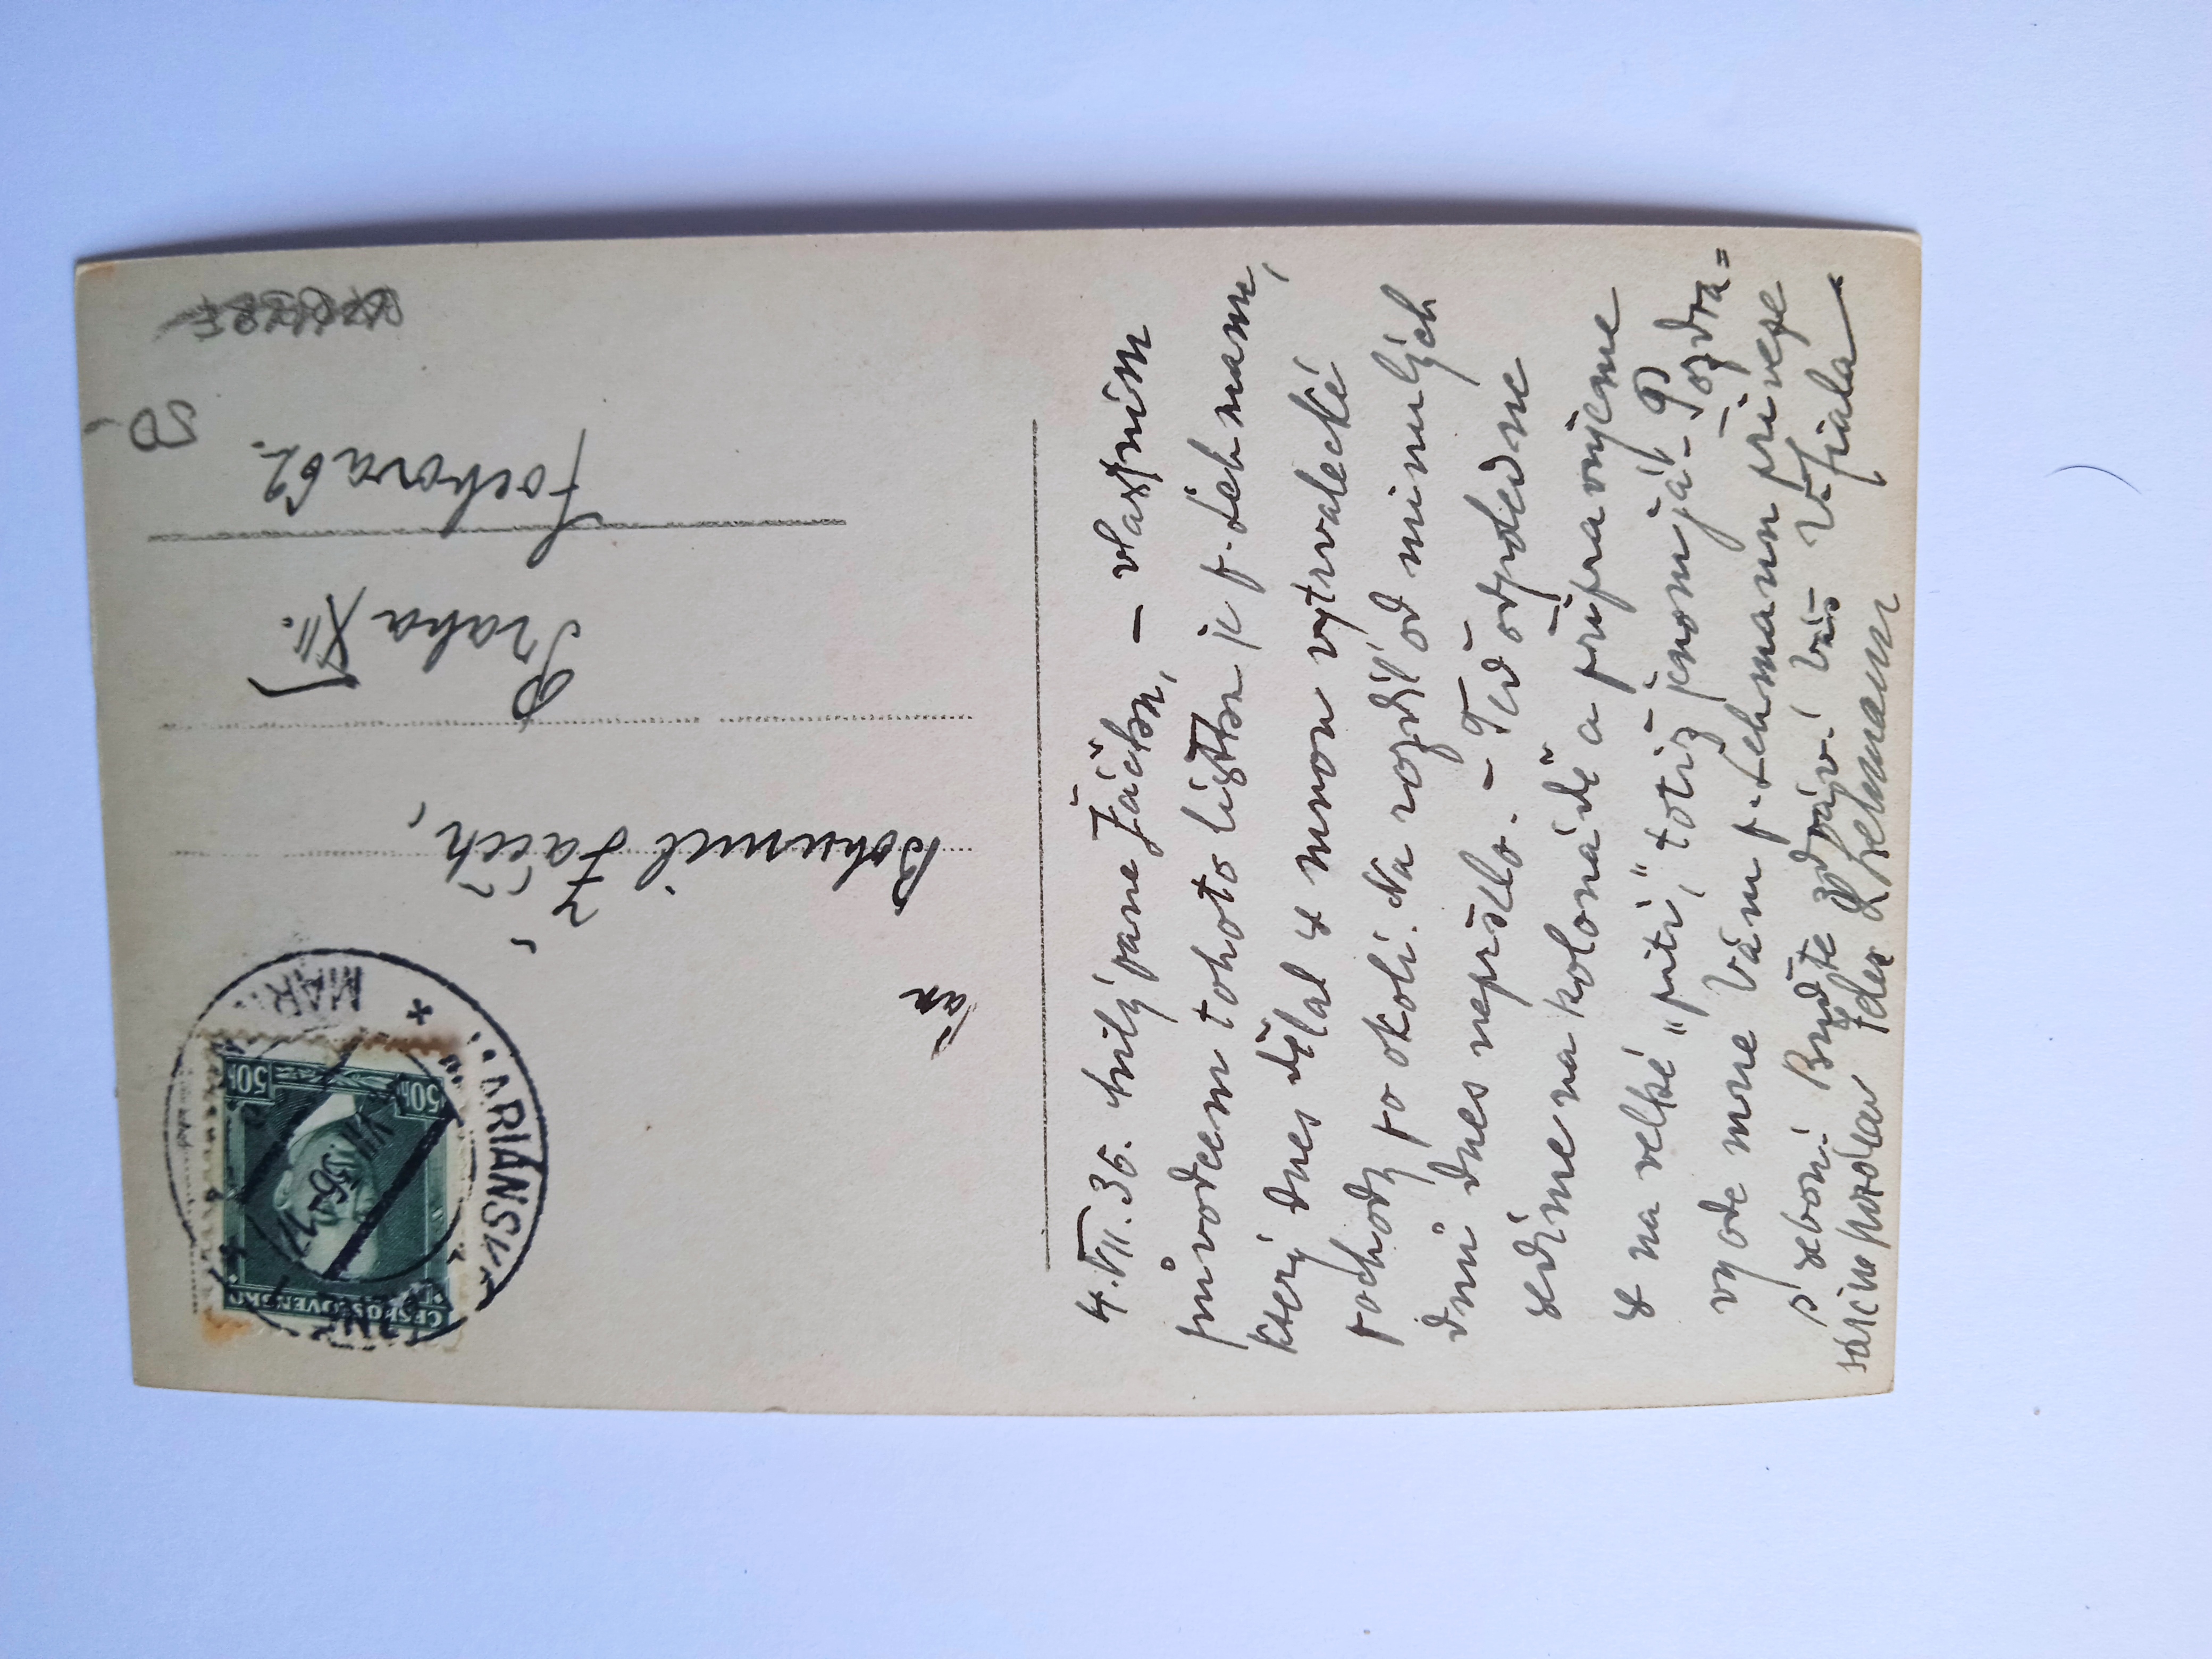 4. VII. 36. Milý pane Žáčku, – vlastním
původcem tohoto lístku je p. Lehmann,
který dnes dělal s mnou vytrvalecké
pochody po okolí. Na rozdíl od minulých
dnů dnes nepršelo. – Teď odpoledne
sedíme na kolonádě a připravujeme
s na velké "pití," totiž jenom já – Pozdra=
vy ode mne Vám p. Lehmann přiveze
s sebou. Buďte zdráv! Váš V. Fiala
srdečně pozdrav Lehmann
Pan
Bohumil Žáček,
Praha XII.
Fochova 62.
50-
MARIÁNSKÉ
MAR
VII 36-17
ČESKOSLOVENSKO
50h
50h